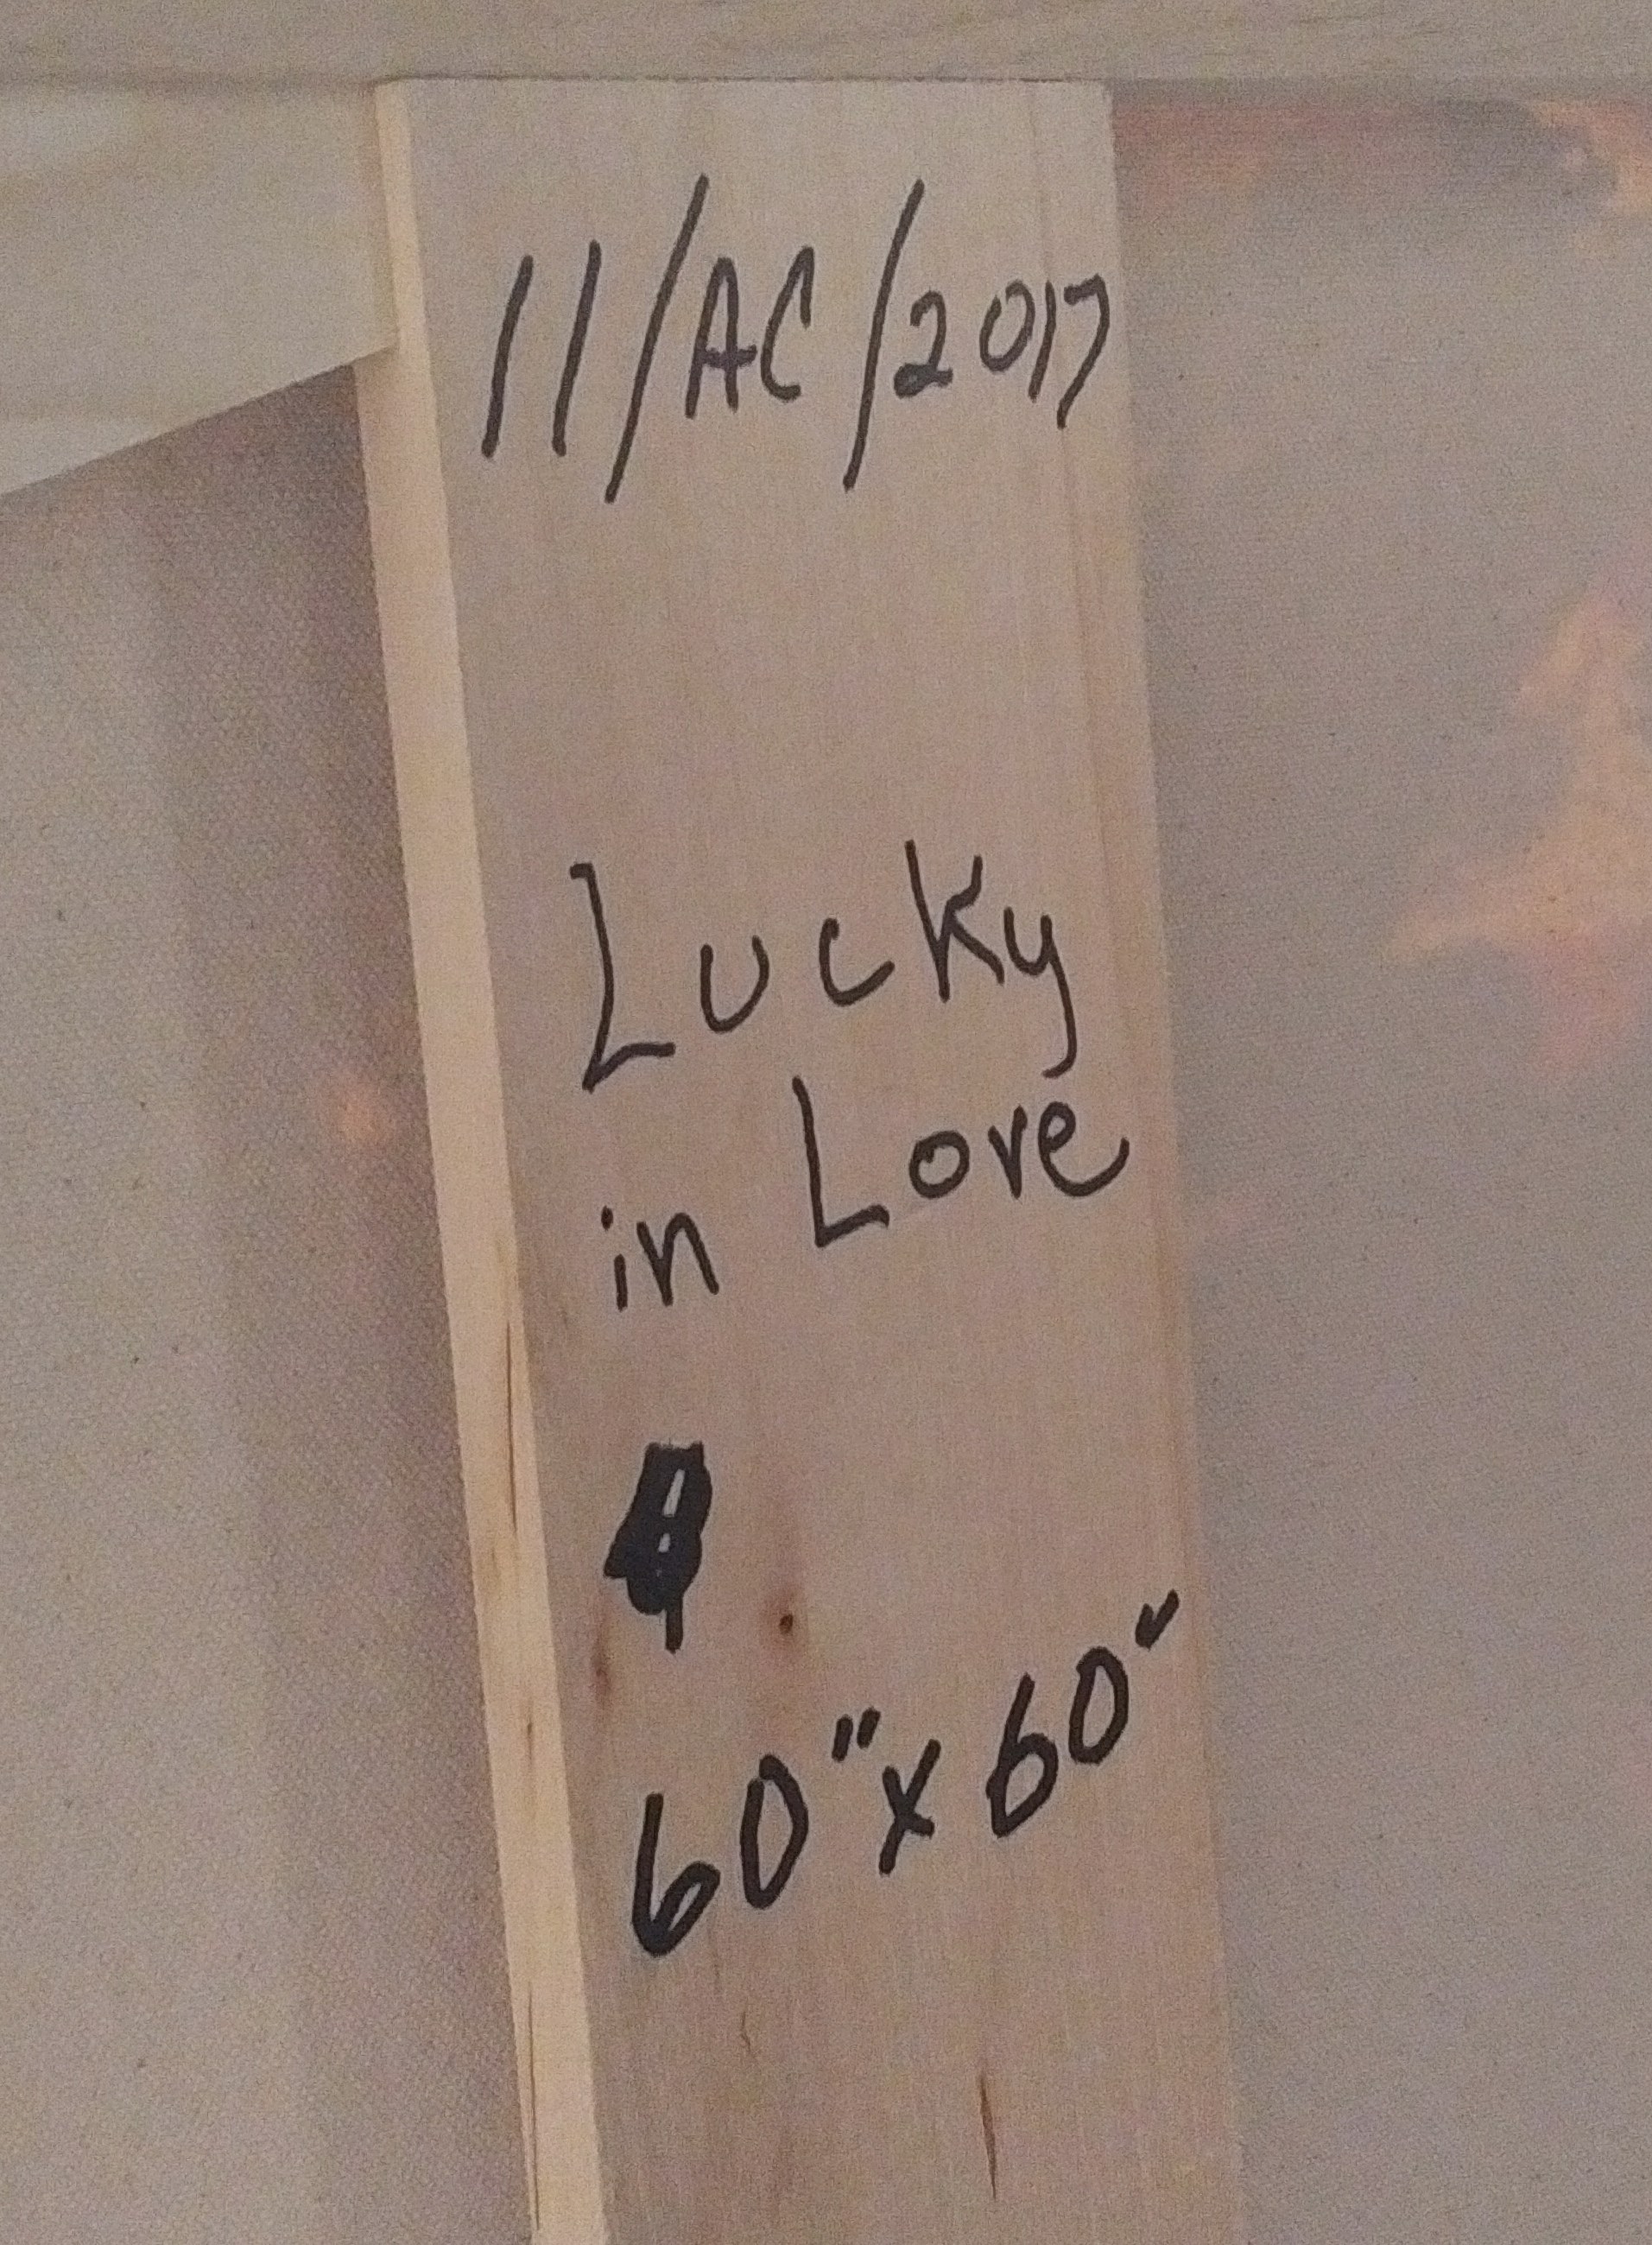 11/AC/2017
Lucky
in Love
60"x60"